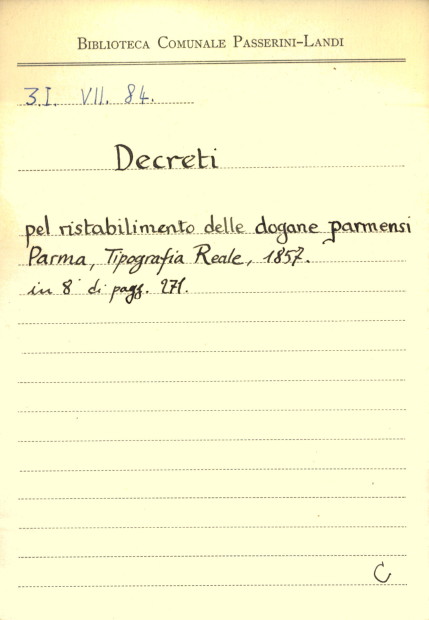 BIBLIOTECA COMUNALE PASSERINI-LANDI
3.I. VII. 84.
Decreti
pel ristabilimento delle dogane parmensi
Parma, Tipografia Reale, 1857.
in 8° di pagg. 271.
C